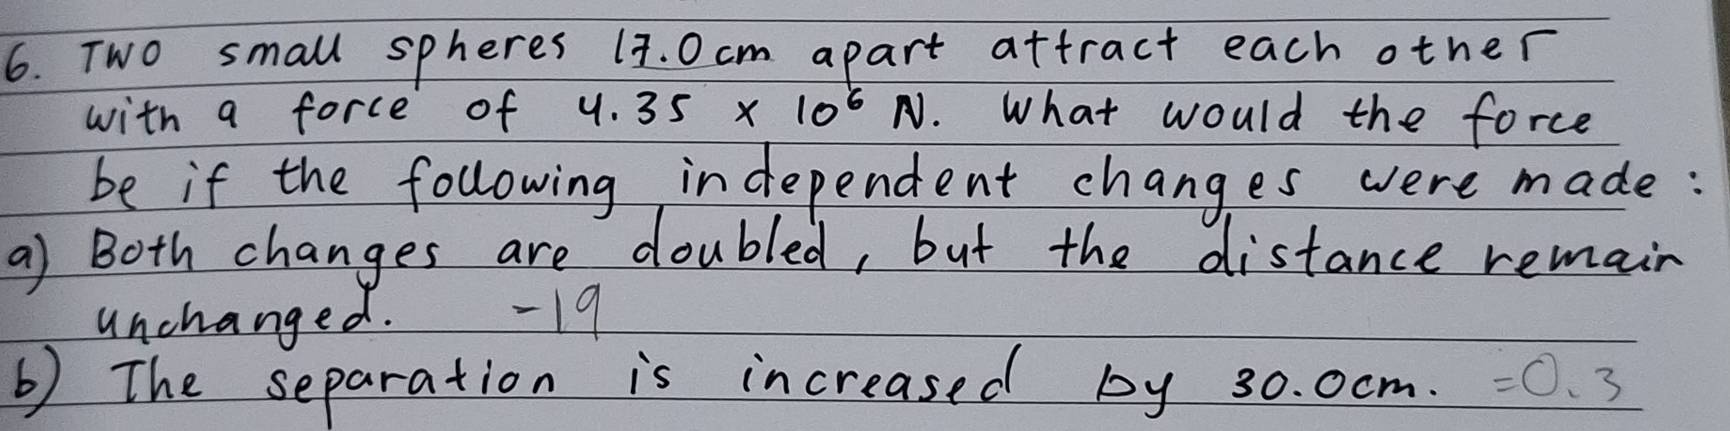 6. Two small spheres 17.0cm apart attract each other
with a force of 4.35 x 10⁶ N. What would the force
be if the following independent changes were made:
a) Both changes are doubled, but the distance remain
unchanged. -19
b) The separation is increased by 30.0cm. =0.3